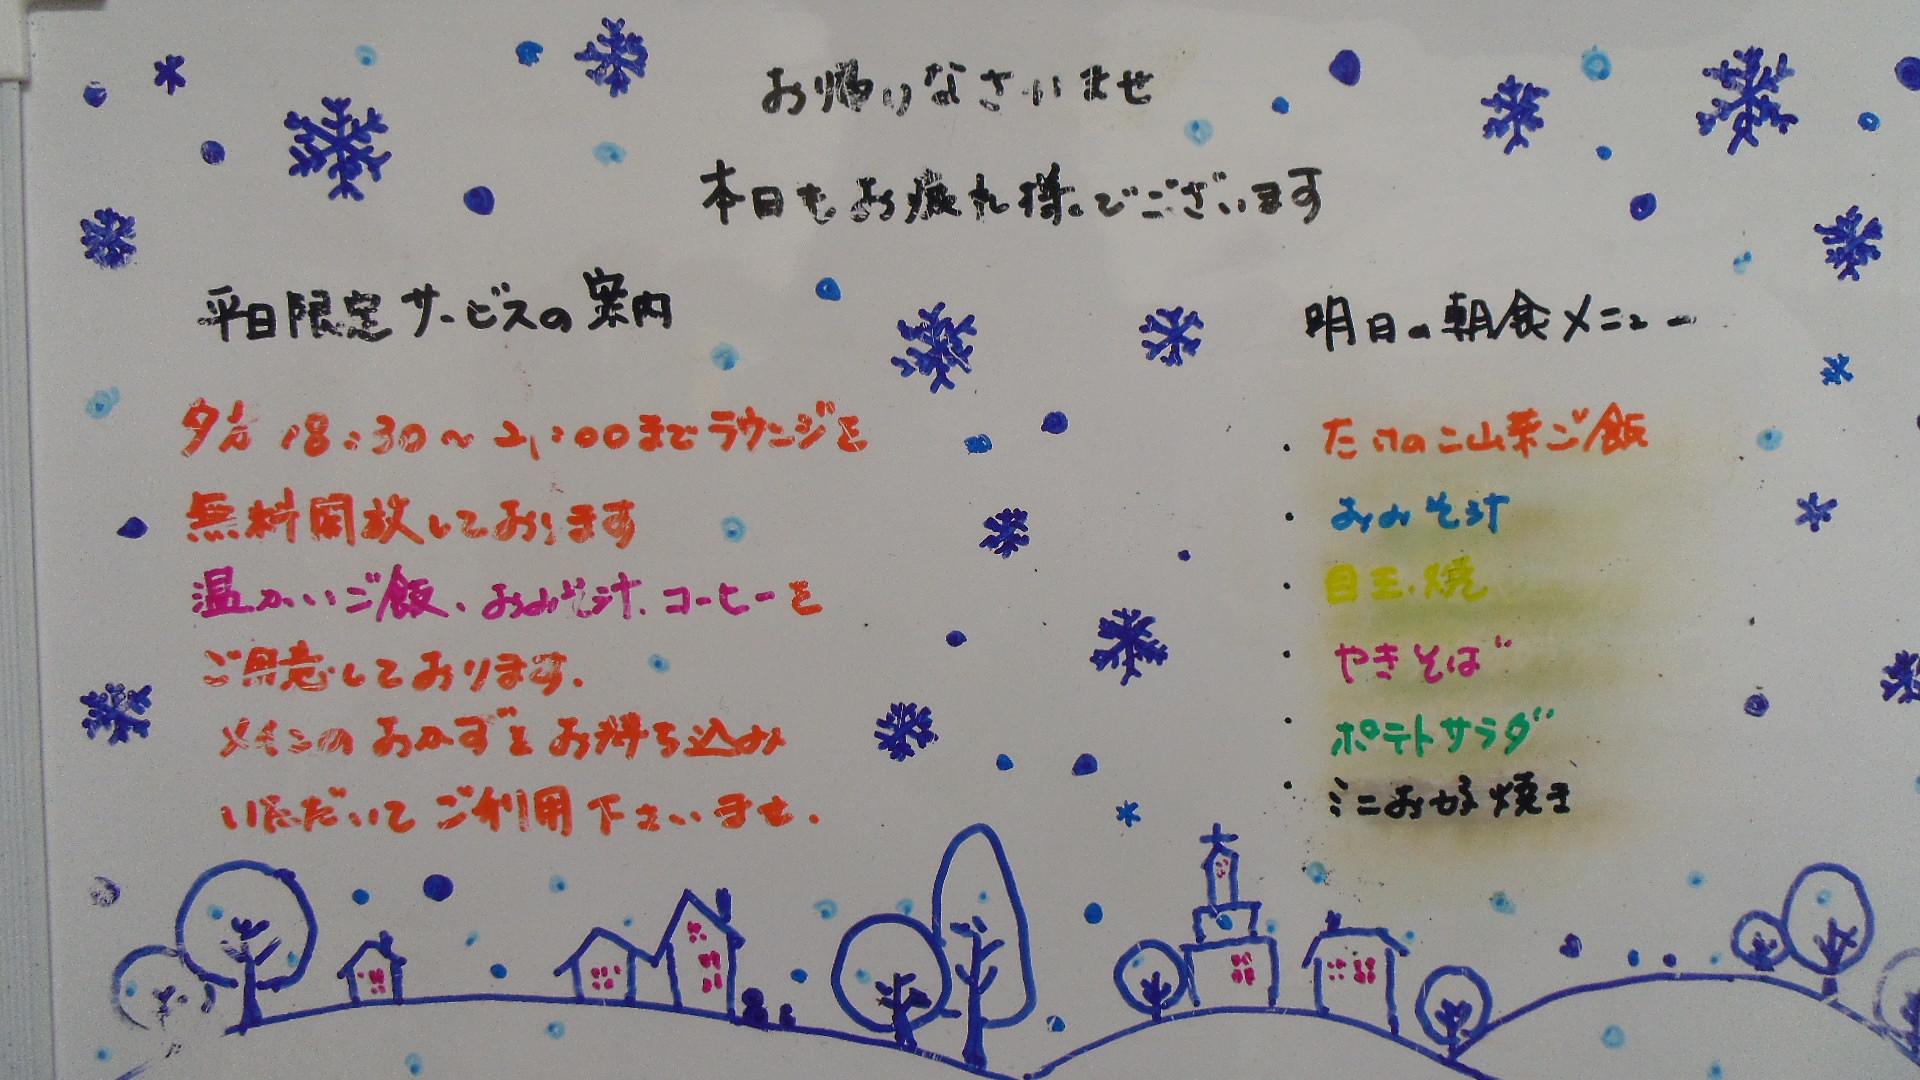 お帰りなさいませ
本日もお疲れ様でございます
平日限定サービスの案内
夕方18:30〜21:00までラウンジを
無料開放しております
温かいご飯、おみそ汁、コーヒーを
ご用意しております.
メインのおかずをお持ち込み
いただいてご利用下さいませ.
明日の朝食メニュー
・たけのこ山菜ご飯
・おみそ汁
・目玉焼
・やきそば
・ポテトサラダ
・ミニお好焼き